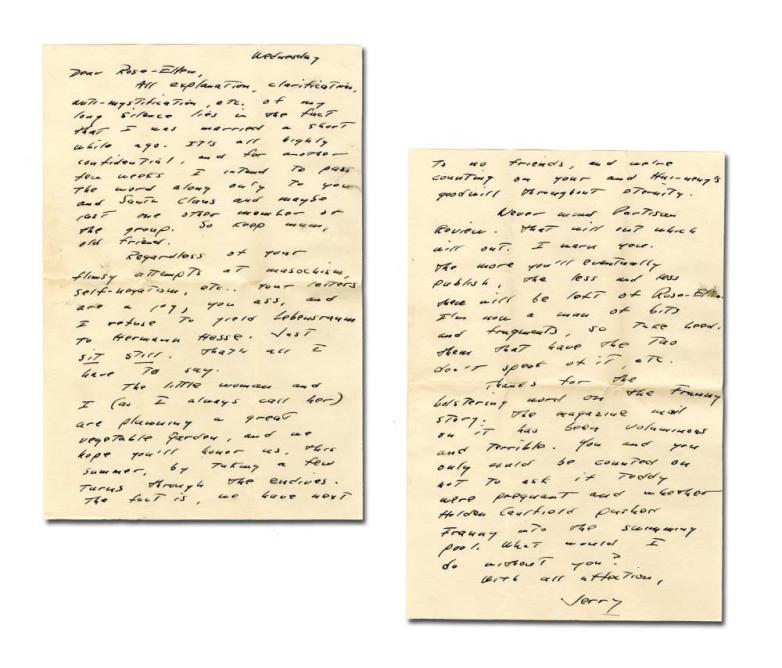 Wednesday
Dear Rose-Ellen,
All explanation, clarification,
anti-mystification, etc. of my
long silence lies in the fact
that I was married a short
while ago. It's all highly
confidential, and for another
few weeks I intend to pass
the word along only to you
and Santa Claus and maybe
just one other member of
the group. So keep mum,
old friend.
Regardless of your
flimsy attempts at masochism,
self-negatism, etc., your letters
are a joy, you ass, and
I refuse to yield Lebensraum
to Hermann Hesse. Just
sit still. That's all I
have to say.
The little woman and
I (as I always call her)
are planning a great
vegetable garden, and we
hope you'll honor us, this
summer, by taking a few
turns through the endives.
The fact is, we have next
to no friends, and we're
counting on your and Hui-neng's
goodwill throughout eternity.
Never mind Partisan
Review. That will out which
will out. I warn you.
The more you'll eventually
publish, the less and less
there will be left of Rose-Ellen.
I'm now a man of bits
and fragments, so take heed.
Them that have the Tao
don't speak of it, etc.
Thanks for the
bolstering word on the Franny
story. The magazine mail
on it has been voluminous
and terrible. You and you
only could be counted on
not to ask if Teddy
were pregnant and whether
Holden Caulfield pushed
Franny into the swimming
pool. What would I
do without you?
With all affection,
Jerry